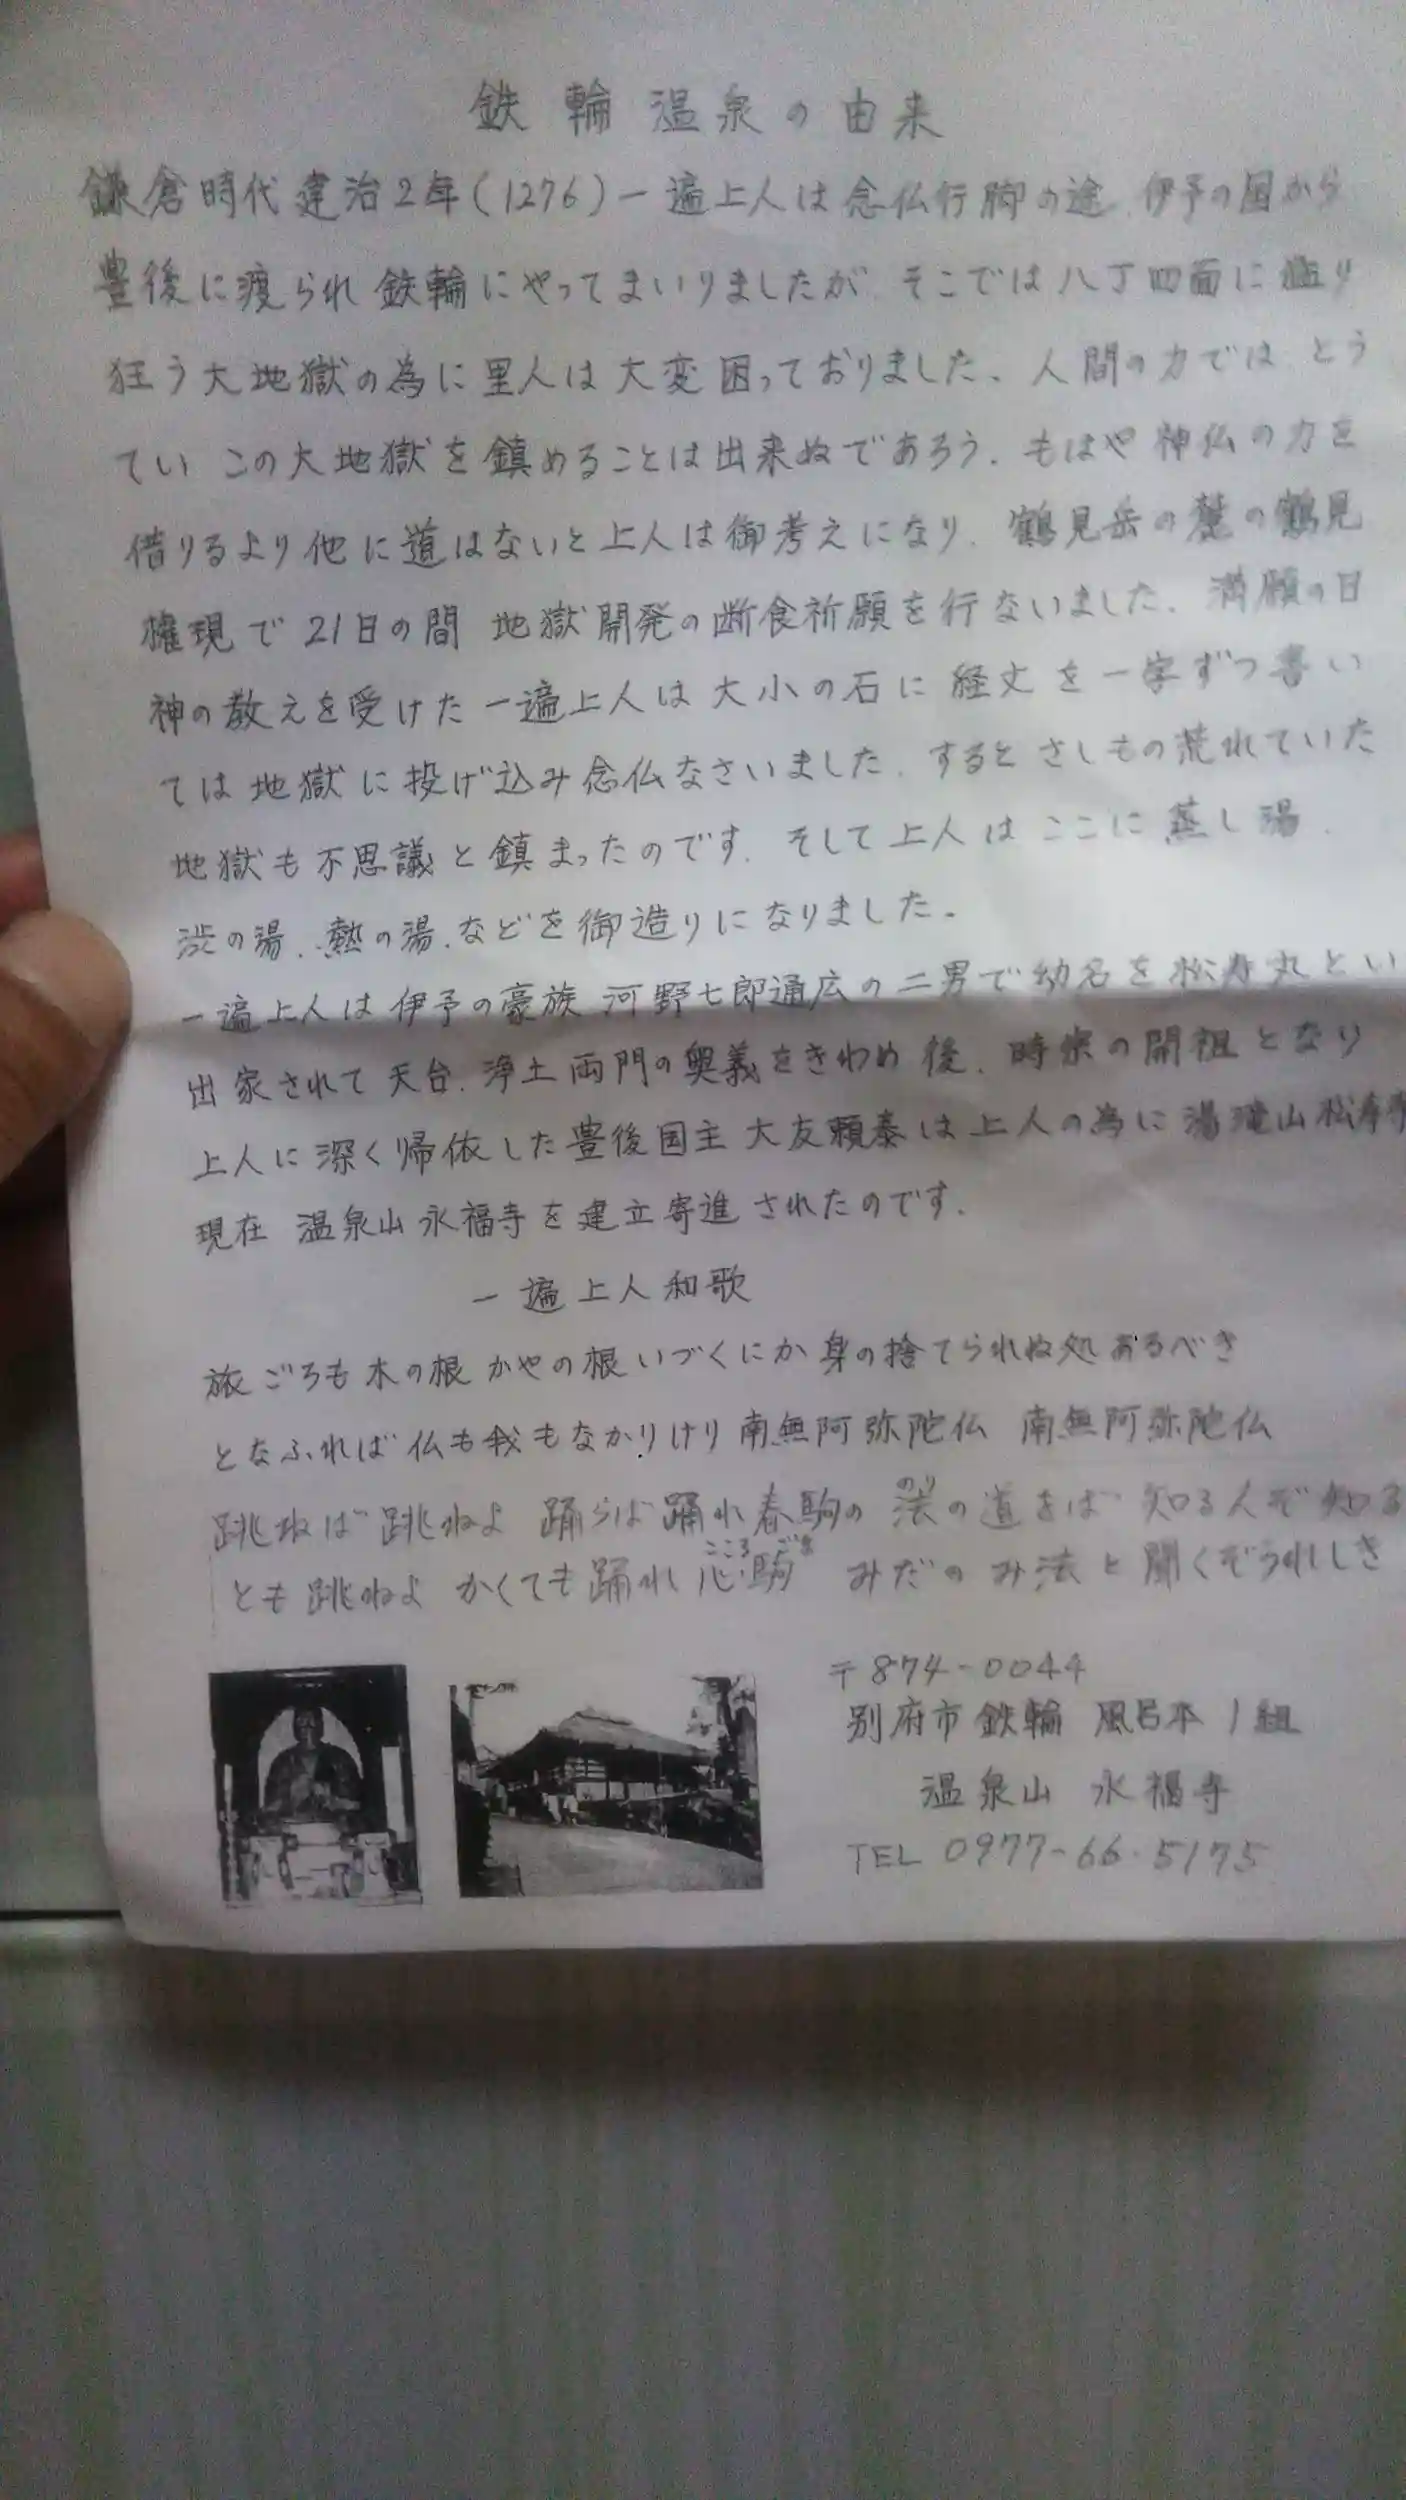 鉄輪温泉の由来
鎌倉時代 建治2年(1276)一遍上人は念仏行脚の途、伊予の国から
豊後に渡られ 鉄輪にやってまいりましたが、そこでは八丁四面に
狂う大地獄の為に里人は大変困っておりました、人間の力では、とう
てい この大地獄を鎮めることは出来ぬであろう、もはや神仏の力を
借りるより他に道はないと上人は御考えになり、鶴見岳の麓の鶴見
権現で21日の間 地獄開発の断食祈願を行ないました、満願の日
神の教えを受けた一遍上人は大小の石に経文を一字ずつ書い
ては地獄に投げ込み念仏なさいました、するとさしもの荒れていた
地獄も不思議と鎮まったのです、そして上人はここに蒸し湯、
渋の湯、熱の湯、などを御造りになりました。
一遍上人は伊予の豪族 河野七郎通広の二男で幼名を松寿丸とい
出家されて天台、浄土両門の奥義をきわめ後、時宗の開祖となり
上人に深く帰依した豊後国主大友頼泰は上人の為に湯滝山松寿寺
現在 温泉山永福寺を建立寄進されたのです、
一遍上人和歌
旅ごろも木の根 かやの根いづくにか身の捨てられぬ処あるべき
となふれば仏も我もなかりけり南無阿弥陀仏 南無阿弥陀仏
跳ねば跳ねよ 踊らば踊れ春駒の法の道をば 知る人ぞ知る
のり
とも跳ねよ かくても踊れ心駒 みだのみ法と聞くぞうれしき
こころ ごま
〒874-0044
別府市鉄輪 風呂本1組
温泉山 永福寺
TEL 0977-66-5175